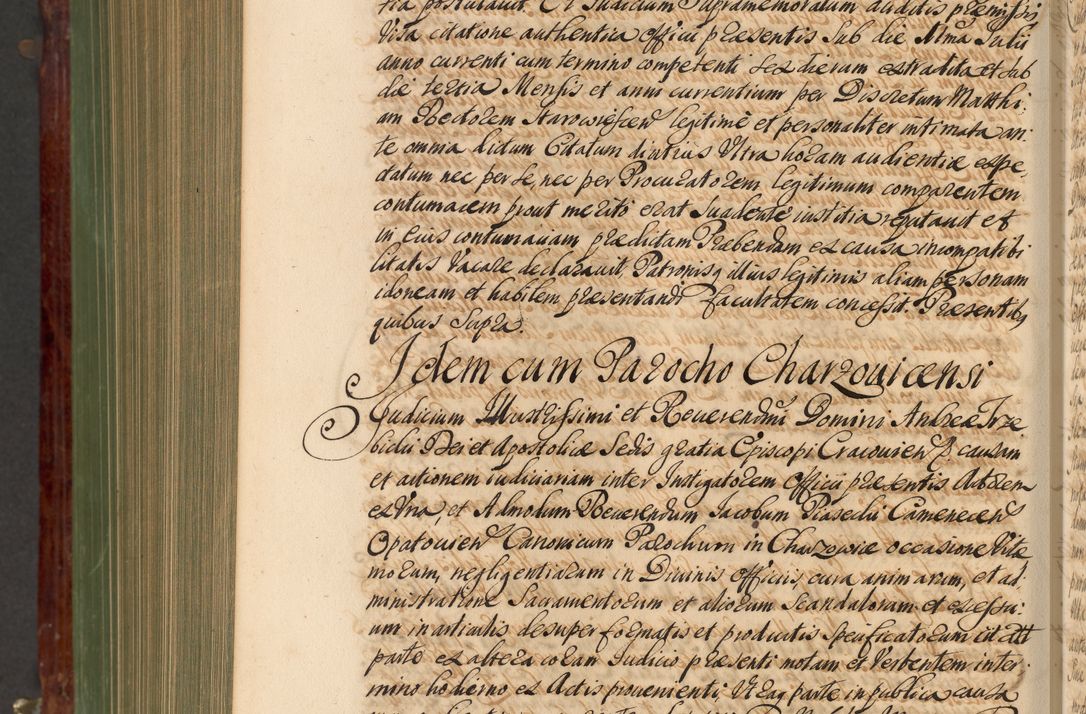 tia postulavit. Et Judicium supramemoratum auditis præmissis
visa citatione authentica Officii præsentis sub die Julii
anno currenti cum termino competenti sex dierum extradita et sub
die tertia Mensis et anni currentium per Discretum Matthi-
am Rectorem legitimè et personaliter intimata an-
te omnia dictum Citatum diutius Ultra horam audientiæ expe-
ctatum nec per se, nec per Procuratorem legitimum comparentem
contumacem prout meritò erat suadente iustitia reputauit et
in eius contumaciam prædictam Præbendam ex causa incompatibi
litatis Vacare declarauit, Patronisq illius legitimis aliam personam
idoneam et habilem præsentandi facultatem concessit. Præsentib9
quibus Supra.
Idem cum Parocho Charzouicensi
Judicium Illustrissimi et Reuerendmi Domini Andreæ Trze
bicki Dei et Apostolicæ Sedis gratia Episcopi Cracouien causam
et actionem iudiciariam inter Instigatorem Officii præsentis Actorem
ex Vna, et Admodum Reuerendum Jacobum Piasecki Camenecen
Opatouien Canonicum Parochum in Charzowice occasione Vite
morum, negligentiarum in Diuinis Officiis, cura animarum, et ad-
ministratione Sacramentorum et aliorum Scandalorum et excessu-
um in articulis desuper formatis et productis specificatorum citatum
parte ex altera coram Judicio præsenti motam et Vertentem in ter-
mino hodierno ex Actis proueniente, Vtraq parte in publica causa